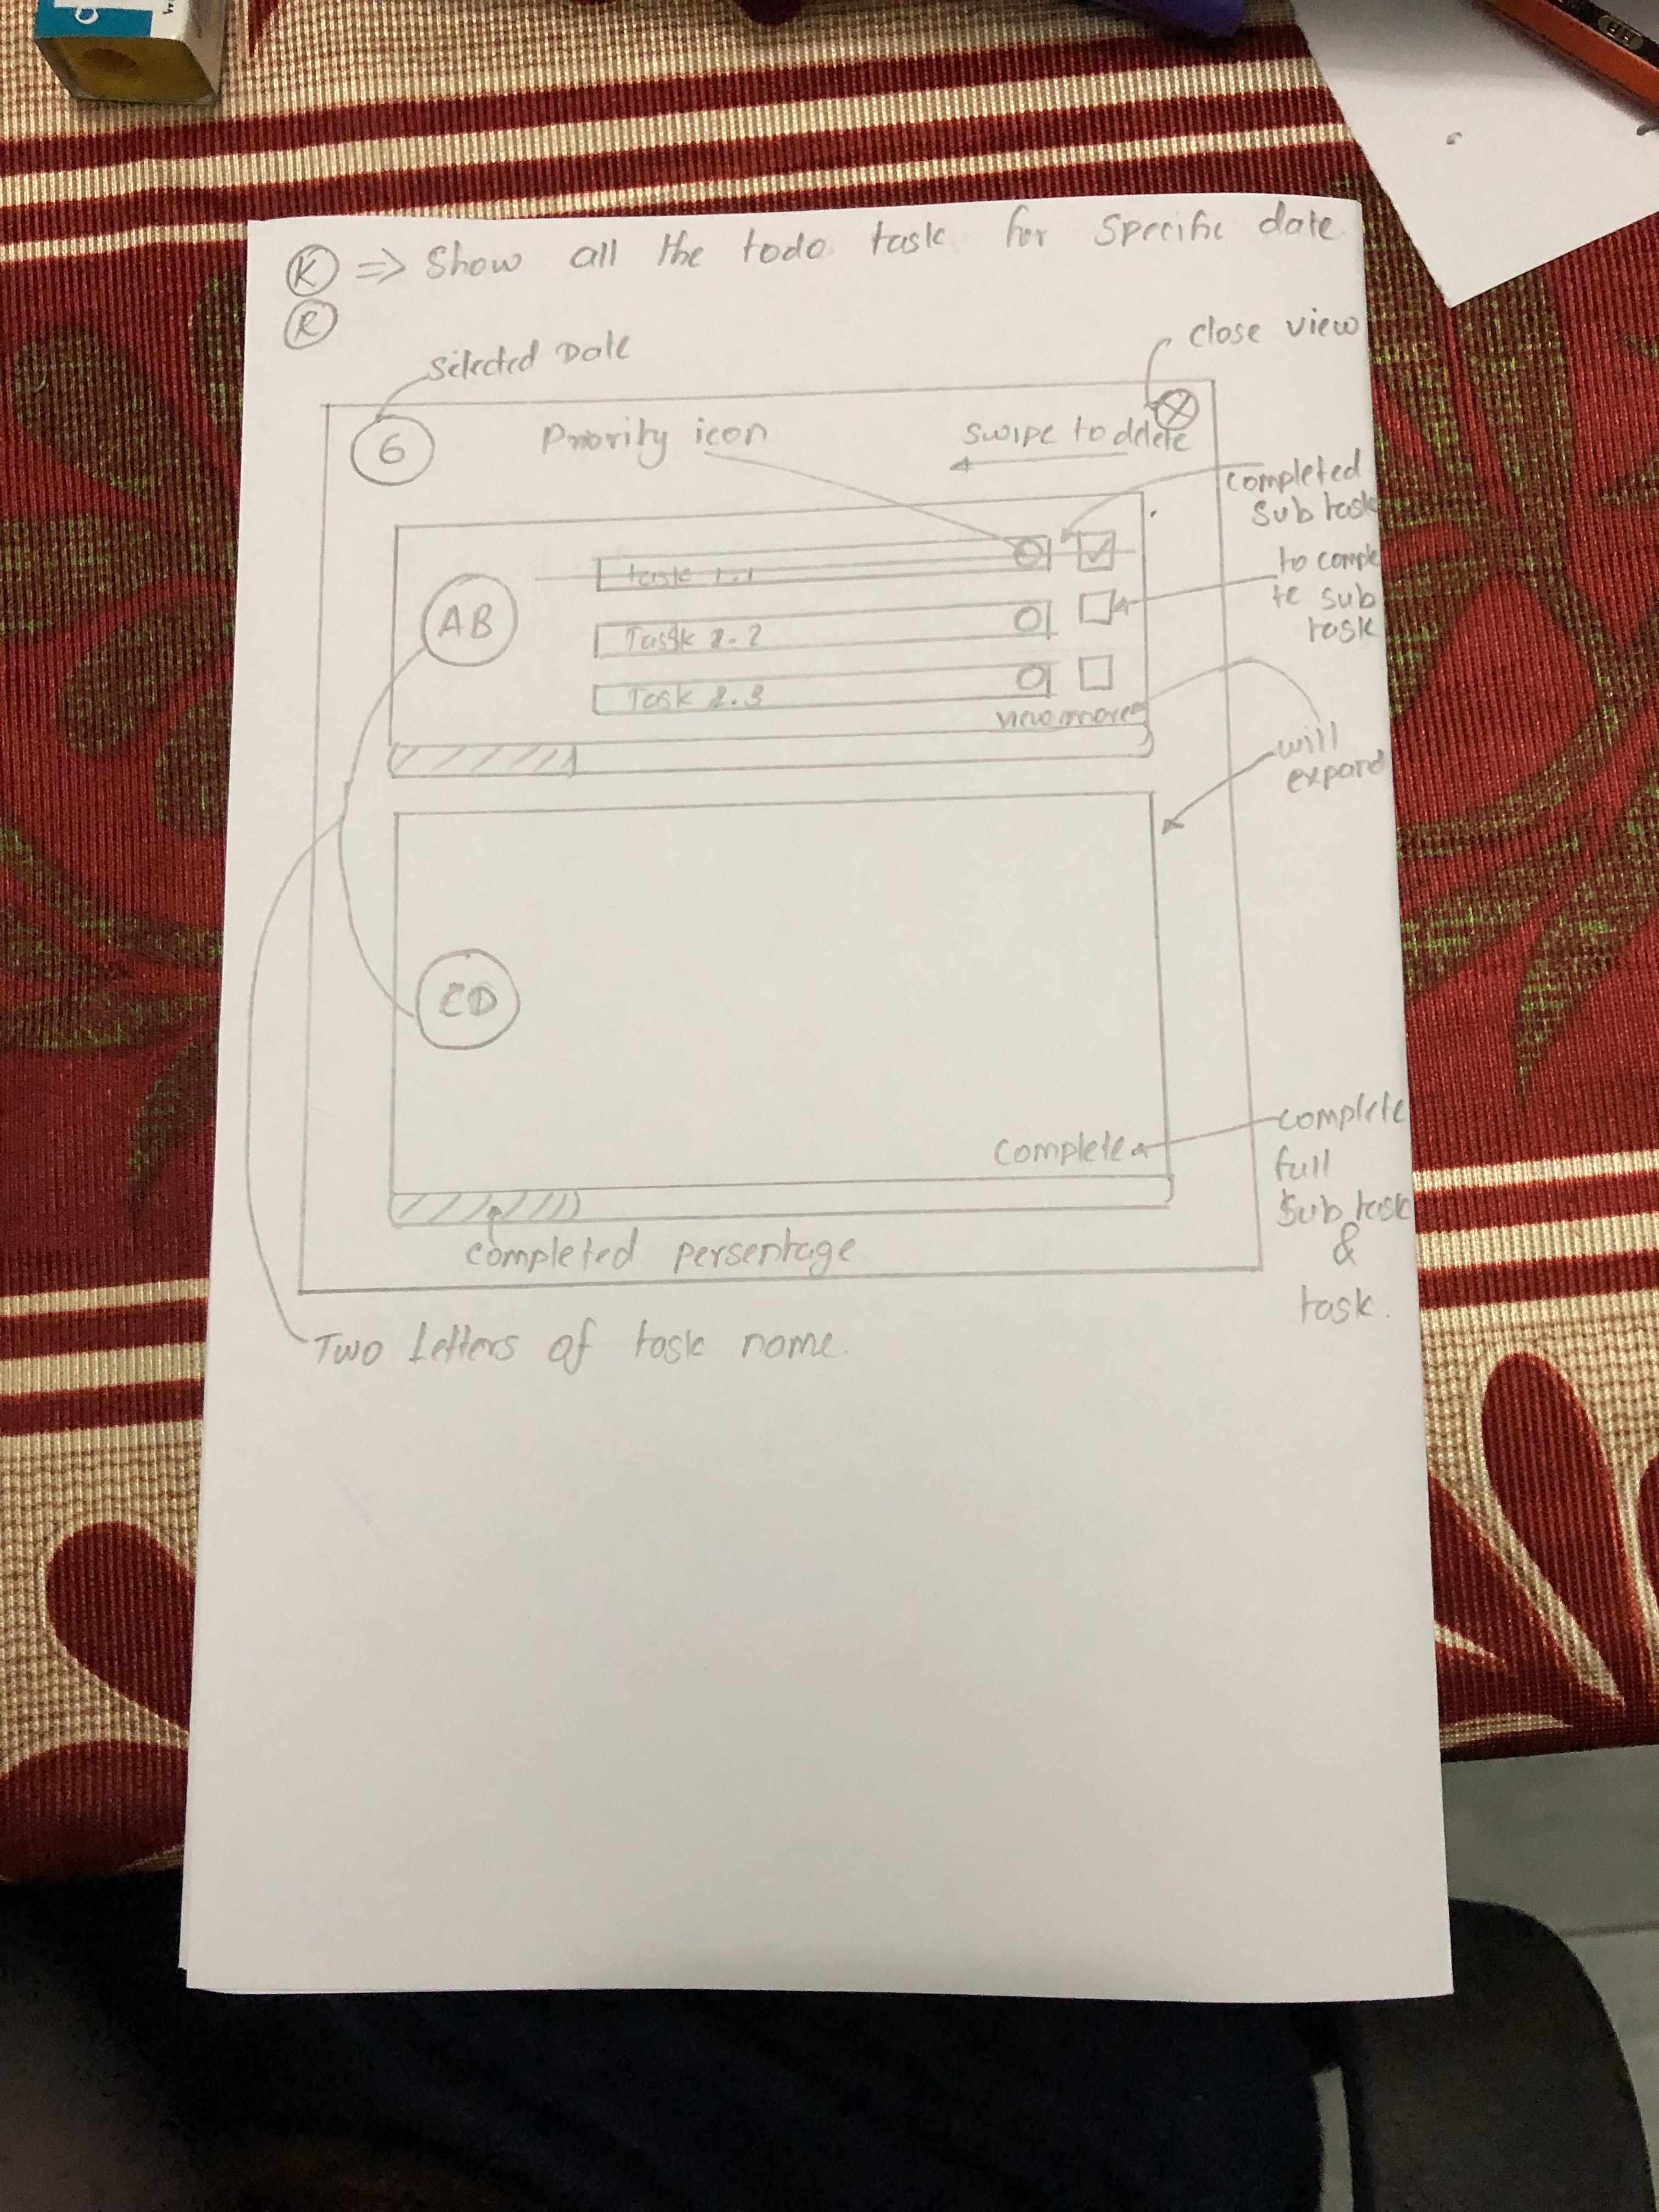 K => Show all the todo task for specific date
R
Selected Date
close view
6
Priority icon
swipe to delete
completed
Sub task
Task 1.1
to comple
te sub
task
AB
Task 2.2
Task 2.3
view more
will
expand
CD
complete
complete
full
Sub task
&
task.
completed persentage
Two Letters of task name.